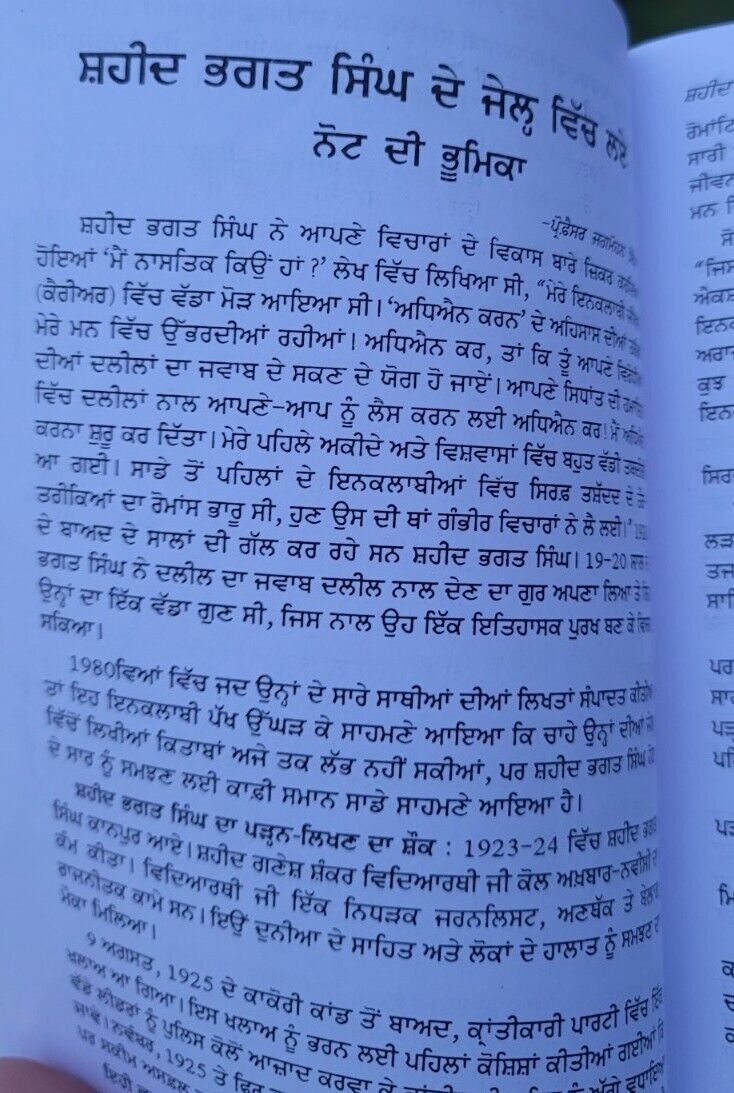 ਸ਼ਹੀਦ ਭਗਤ ਸਿੰਘ ਦੇ ਜੇਲ੍ਹ ਵਿੱਚ ਲਏ
ਨੋਟ ਦੀ ਭੂਮਿਕਾ
-ਪ੍ਰੋਫ਼ੈਸਰ ਜਗਮੋਹਨ
ਸ਼ਹੀਦ ਭਗਤ ਸਿੰਘ ਨੇ ਆਪਣੇ ਵਿਚਾਰਾਂ ਦੇ ਵਿਕਾਸ ਬਾਰੇ ਜ਼ਿਕਰ
ਹੋਇਆਂ ‘ਮੈਂ ਨਾਸਤਿਕ ਕਿਉਂ ਹਾਂ ?’ ਲੇਖ ਵਿੱਚ ਲਿਖਿਆ ਸੀ, “ਮੇਰੇ ਇਨਕਲਾਬੀ
(ਕੈਰੀਅਰ) ਵਿੱਚ ਵੱਡਾ ਮੋੜ ਆਇਆ ਸੀ। ‘ਅਧਿਐਨ ਕਰਨ’ ਦੇ ਅਹਿਸਾਸ ਦੀਆਂ
ਮੇਰੇ ਮਨ ਵਿੱਚ ਉੱਭਰਦੀਆਂ ਰਹੀਆਂ। ਅਧਿਐਨ ਕਰ, ਤਾਂ ਕਿ ਤੂੰ ਆਪਣੇ
ਦੀਆਂ ਦਲੀਲਾਂ ਦਾ ਜਵਾਬ ਦੇ ਸਕਣ ਦੇ ਯੋਗ ਹੋ ਜਾਏਂ। ਆਪਣੇ ਸਿਧਾਂਤ ਦੀ
ਵਿੱਚ ਦਲੀਲਾਂ ਨਾਲ ਆਪਣੇ-ਆਪ ਨੂੰ ਲੈਸ ਕਰਨ ਲਈ ਅਧਿਐਨ ਕਰ! ਮੈਂ
ਕਰਨਾ ਸ਼ੁਰੂ ਕਰ ਦਿੱਤਾ। ਮੇਰੇ ਪਹਿਲੇ ਅਕੀਦੇ ਅਤੇ ਵਿਸ਼ਵਾਸਾਂ ਵਿੱਚ ਬਹੁਤ ਵੱਡੀ
ਆ ਗਈ। ਸਾਡੇ ਤੋਂ ਪਹਿਲਾਂ ਦੇ ਇਨਕਲਾਬੀਆਂ ਵਿੱਚ ਸਿਰਫ਼ ਤਸ਼ੱਦਦ ਦੇ
ਤਰੀਕਿਆਂ ਦਾ ਰੋਮਾਂਸ ਭਾਰੂ ਸੀ, ਹੁਣ ਉਸ ਦੀ ਥਾਂ ਗੰਭੀਰ ਵਿਚਾਰਾਂ ਨੇ ਲੈ ਲਈ।”
ਦੇ ਬਾਅਦ ਦੇ ਸਾਲਾਂ ਦੀ ਗੱਲ ਕਰ ਰਹੇ ਸਨ ਸ਼ਹੀਦ ਭਗਤ ਸਿੰਘ। 19-20 ਸਾਲ
ਭਗਤ ਸਿੰਘ ਨੇ ਦਲੀਲ ਦਾ ਜਵਾਬ ਦਲੀਲ ਨਾਲ ਦੇਣ ਦਾ ਗੁਰ ਅਪਣਾ ਲਿਆ ਤੇ
ਉਨ੍ਹਾਂ ਦਾ ਇੱਕ ਵੱਡਾ ਗੁਣ ਸੀ, ਜਿਸ ਨਾਲ ਉਹ ਇੱਕ ਇਤਿਹਾਸਕ ਪੁਰਖ ਬਣ ਕੇ
ਸਕਿਆ।
1980ਵਿਆਂ ਵਿੱਚ ਜਦ ਉਨ੍ਹਾਂ ਦੇ ਸਾਰੇ ਸਾਥੀਆਂ ਦੀਆਂ ਲਿਖਤਾਂ ਸੰਪਾਦਤ ਕੀਤੀਆਂ
ਤਾਂ ਇਹ ਇਨਕਲਾਬੀ ਪੱਖ ਉੱਘੜ ਕੇ ਸਾਹਮਣੇ ਆਇਆ ਕਿ ਚਾਹੇ ਉਨ੍ਹਾਂ ਦੀਆਂ
ਵਿੱਚੋਂ ਲਿਖੀਆਂ ਕਿਤਾਬਾਂ ਅਜੇ ਤਕ ਲੱਭ ਨਹੀਂ ਸਕੀਆਂ, ਪਰ ਸ਼ਹੀਦ ਭਗਤ ਸਿੰਘ
ਦੇ ਸਾਰ ਨੂੰ ਸਮਝਣ ਲਈ ਕਾਫ਼ੀ ਸਮਾਨ ਸਾਡੇ ਸਾਹਮਣੇ ਆਇਆ ਹੈ।
ਸ਼ਹੀਦ ਭਗਤ ਸਿੰਘ ਦਾ ਪੜ੍ਹਨ-ਲਿਖਣ ਦਾ ਸ਼ੌਕ : 1923-24 ਵਿੱਚ ਸ਼ਹੀਦ ਭਗਤ
ਸਿੰਘ ਕਾਨਪੁਰ ਆਏ। ਸ਼ਹੀਦ ਗਣੇਸ਼ ਸ਼ੰਕਰ ਵਿਦਿਆਰਥੀ ਜੀ ਕੋਲ ਅਖ਼ਬਾਰ-ਨਵੀਸੀ ਦਾ
ਕੰਮ ਕੀਤਾ। ਵਿਦਿਆਰਥੀ ਜੀ ਇੱਕ ਨਿਧੜਕ ਜਰਨਲਿਸਟ, ਅਣਥੱਕ ਤੇ
ਰਾਜਨੀਤਕ ਕਾਮੇ ਸਨ। ਇਉਂ ਦੁਨੀਆ ਦੇ ਸਾਹਿਤ ਅਤੇ ਲੋਕਾਂ ਦੇ ਹਾਲਾਤ ਨੂੰ ਸਮਝਣ ਦਾ
ਮੌਕਾ ਮਿਲਿਆ।
9 ਅਗਸਤ, 1925 ਦੇ ਕਾਕੋਰੀ ਕਾਂਡ ਤੋਂ ਬਾਅਦ, ਕ੍ਰਾਂਤੀਕਾਰੀ ਪਾਰਟੀ ਵਿੱਚ ਇੱਕ
ਖਲਾਅ ਆ ਗਿਆ। ਇਸ ਖਲਾਅ ਨੂੰ ਭਰਨ ਲਈ ਪਹਿਲਾਂ ਕੋਸ਼ਿਸ਼ਾਂ ਕੀਤੀਆਂ ਗਈਆਂ ਕਿ
ਵੱਡੇ ਲੀਡਰਾਂ ਨੂੰ ਪੁਲਿਸ ਕੋਲੋਂ ਆਜ਼ਾਦ ਕਰਵਾ ਕੇ ਨੂੰ ਅੱਗੇ ਵਧਾਇਆ
ਜਾਵੇ। ਨਵੰਬਰ, 1925 ਤੇ ਫਿਰ
ਪਰ ਸਕੀਮ ਅਸਫ਼ਲ
ਇਹੀ
ਸ਼ਹੀਦ
ਸਾਰੀ
ਜੀਵਨ
ਮਨ
“ਜਿਸ
ਕੁਝ